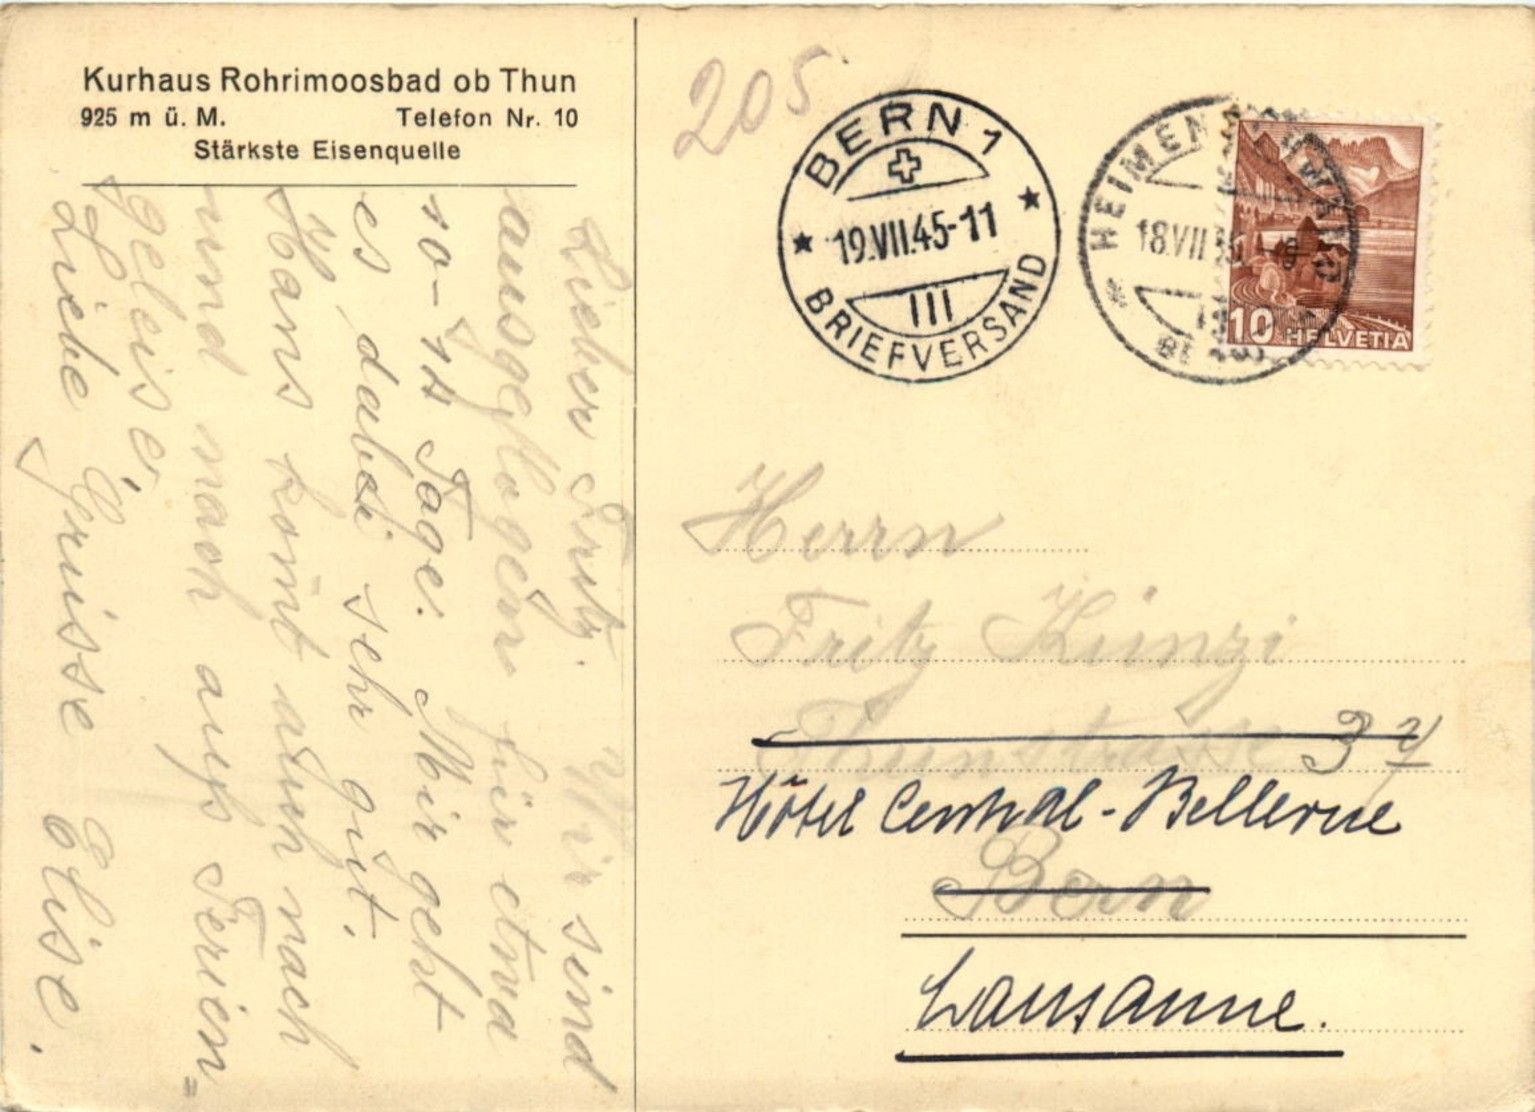 Kurhaus Rohrimoosbad ob Thun
925 m ü. M. Telefon Nr. 10
Stärkste Eisenquelle
Lieber Fritz. Wir sind
ausgeflogen für etwa
10-14 Tage. Mir geht
es dabei sehr gut.
Hans komt auch nach
und nach aufs Ferien=
geleise.
Liebe Grüsse Elise.
205
BERN 1
19.VII.45-11
III
BRIEFVERSAND
HEIMENSCHWAND
18.VII
10 HELVETIA
Herrn
Fritz Künzi
Thunstrasse 37
Hôtel Central-Bellevue
Bern
Lausanne.